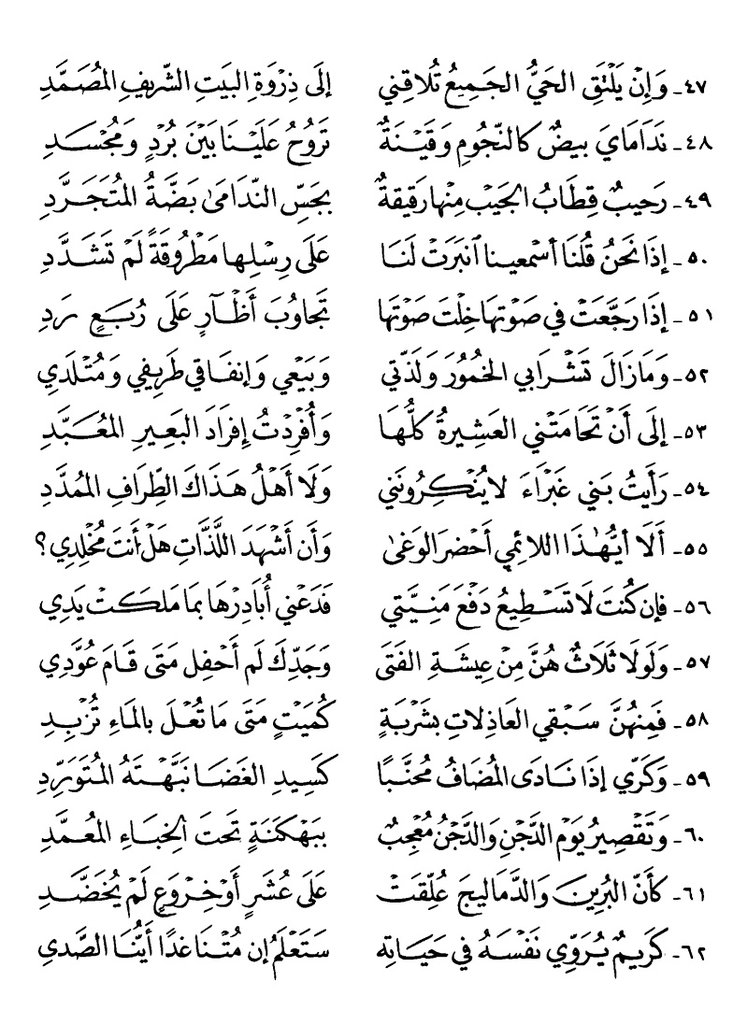 ٤٧- وَإِنْ يَلْتَقِ الحَيُّ الجَمِيعُ تُلَاقِنِي إِلَى ذِرْوَةِ البَيْتِ الشَّرِيفِ المُصَمَّدِ
٤٨- نَدَامَايَ بِيضٌ كَالنُّجُومِ وَقَيْنَةٌ تَرُوحُ عَلَيْنَا بَيْنَ بُرْدٍ وَمُجْسَدِ
٤٩- رَحِيبٌ قِطَابُ الجَيْبِ مِنْهَا رَقِيقَةٌ بِجَسِّ النَّدَامَىٰ بَضَّةُ المُتَجَرَّدِ
٥٠- إِذَا نَحْنُ قُلْنَا أَسْمِعِينَا ٱنْبَرَتْ لَنَا عَلَى رِسْلِهَا مَطْرُوقَةً لَمْ تَشَدَّدِ
٥١- إِذَا رَجَّعَتْ فِي صَوْتِهَا خِلْتَ صَوْتَهَا تَجَاوُبَ أَظْآرٍ عَلَى رُبَعٍ رَدِ
٥٢- وَمَا زَالَ تَشْرَابِي الخُمُورَ وَلَذَّتِي وَبَيْعِي وَإِنْفَاقِي طَرِيفِي وَمُتْلَدِي
٥٣- إِلَى أَنْ تَحَامَتْنِي العَشِيرَةُ كُلُّهَا وَأُفْرِدْتُ إِفْرَادَ البَعِيرِ المُعَبَّدِ
٥٤- رَأَيْتُ بَنِي غَبْرَاءَ لَا يُنْكِرُونَنِي وَلَا أَهْلُ هَذَاكَ الطِّرَافِ المُمَدَّدِ
٥٥- أَلَا أَيُّهٰذَا اللَائِمِي أَحْضُرَ الوَغَىٰ وَأَن أَشْهَدَ اللَّذَّاتِ هَلْ أَنْتَ مُخْلِدِي؟
٥٦- فَإِن كُنْتَ لَا تَسْطِيعُ دَفْعَ مَنِيَّتِي فَدَعْنِي أُبَادِرْهَا بِمَا مَلَكَتْ يَدِي
٥٧- وَلَوْلَا ثَلَاثٌ هُنَّ مِنْ عِيشَةِ الفَتَى وَجَدِّكَ لَم أَحْفِل مَتَى قَامَ عُوَّدِي
٥٨- فَمِنْهُنَّ سَبْقِي العَاذِلَاتِ بِشَرْبَةٍ كُمَيْتٍ مَتَى مَا تُعْلَ بِالمَاءِ تُزْبِدِ
٥٩- وَكَرِّي إِذَا نَادَى المُضَافُ مُحَنَّبًا كَسِيدِ الغَضَا نَبَّهْتَهُ المُتَوَرِّدِ
٦٠- وَتَقْصِيرُ يَوْمِ الدَّجْنِ وَالدَّجْنُ مُعْجِبٌ بِبَهْكَنَةٍ تَحْتَ الخِبَاءِ المُعَمَّدِ
٦١- كَأَنَّ البُرِينَ وَالدَّمَالِيجَ عُلِّقَتْ عَلَى عُشَرٍ أَوْ خِرْوَعٍ لَمْ يُخَضَّدِ
٦٢- كَرِيمٌ يُرَوِّي نَفْسَهُ فِي حَيَاتِهِ سَتَعْلَمُ إِن مُتْنَا غَدًا أَيُّنَا الصَّدِي